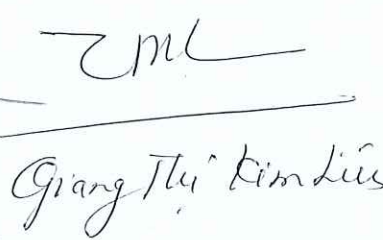 Giang Thị Kim Liễu